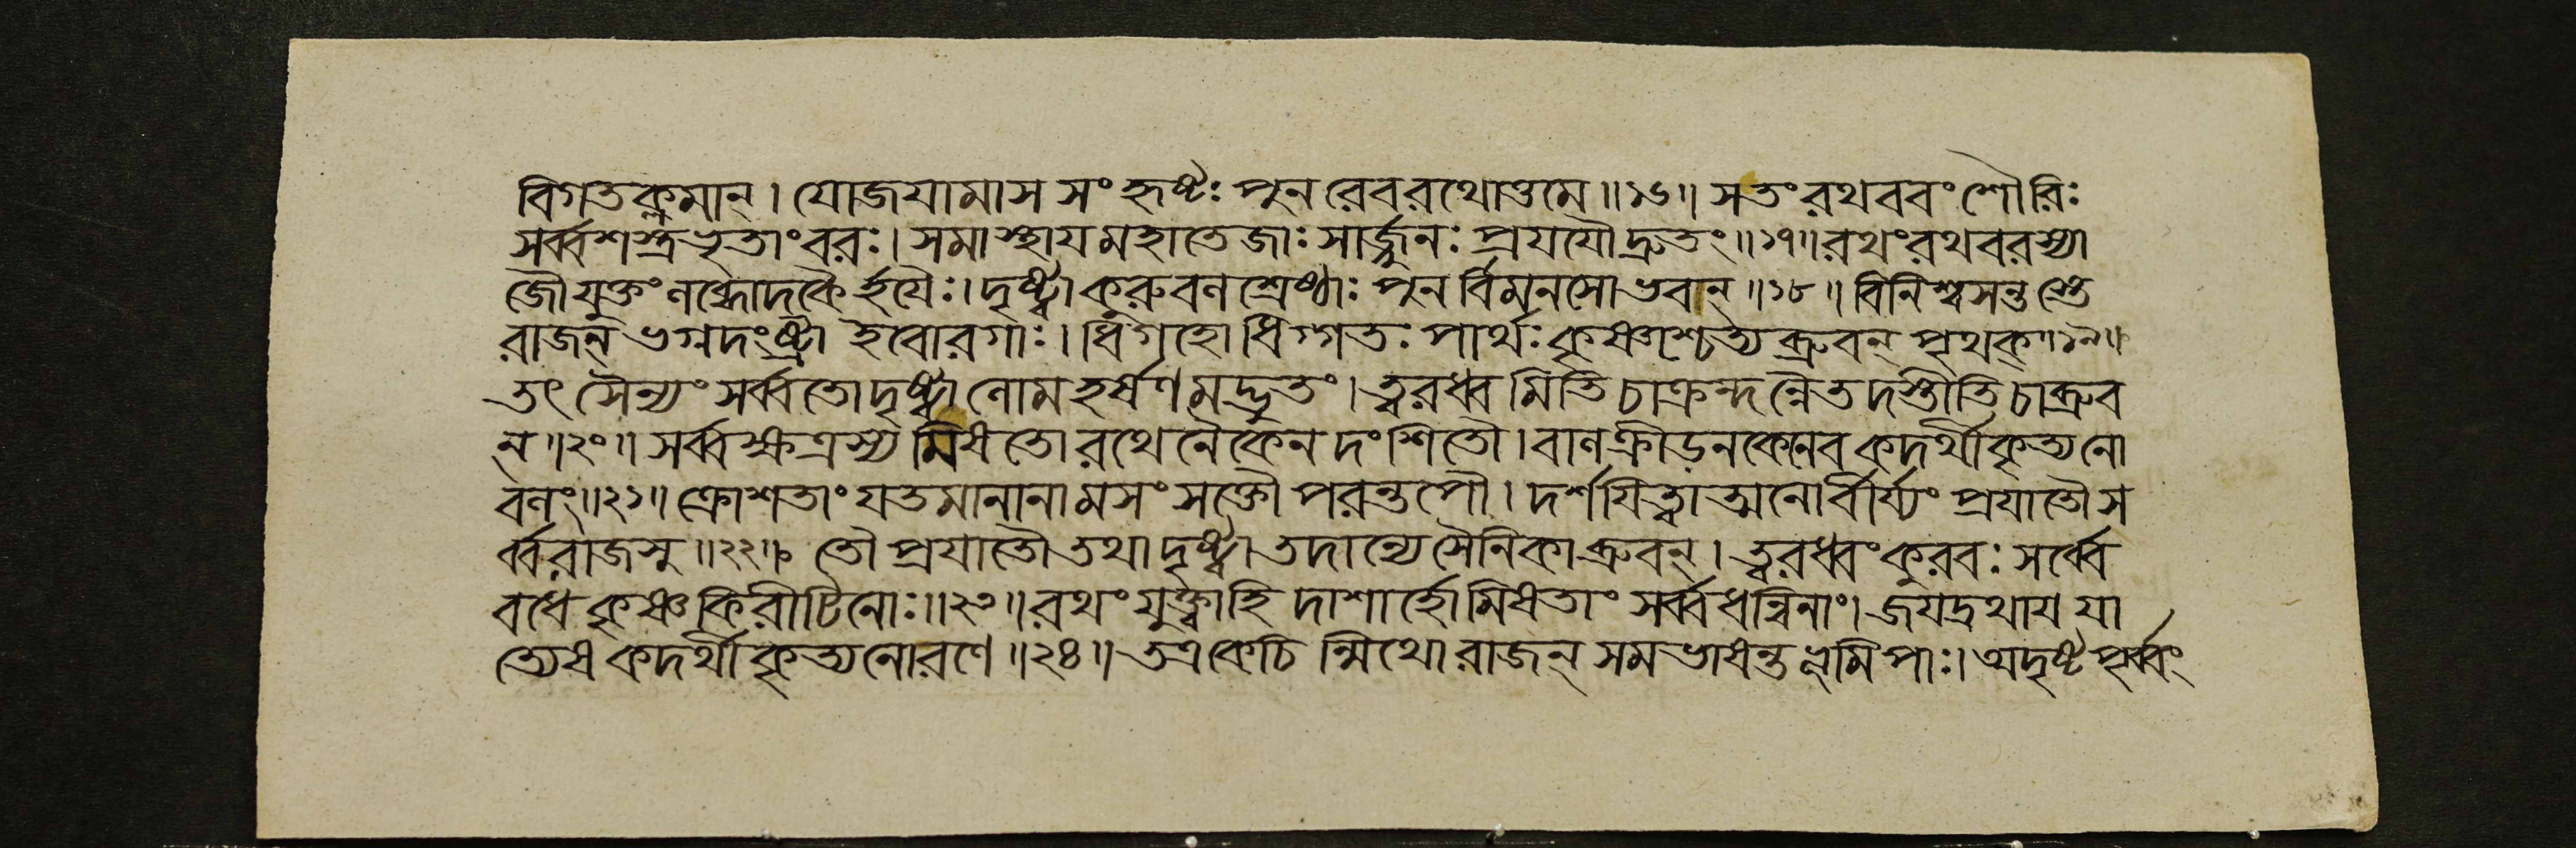 বিগতক্লমান্। যোজযামাস সংহৃষ্টঃ পুনরেবরথোত্তমে॥১৬॥ সতংরথববংশৌরিঃ
সর্ব্বশস্ত্রভৃতাংবরঃ। সমাস্থাযমহাতেজাঃ সার্জ্জুনঃ প্রযযৌদ্রুতং॥১৭॥রথংরথবরস্যা
জৌযুক্তংণব্ধোদকৈর্হযৈঃ। দৃষ্ট্বাকুরুবণশ্রেষ্ঠাঃ পুনর্বিমনসোভবান্॥১৮॥বিনিশ্বসন্তস্তে
রাজন্ ভগ্নদংষ্ট্রা ইবোরগাঃ। ধিগহোধিগ্গতঃ পার্থঃ কৃষ্ণশ্চেত্যব্রুবন্ পৃথক্॥১৯॥
তৎ সৈন্যং সর্ব্বতোদৃষ্ট্বাণোমহর্ষণমদ্ভুতং। ত্বরধ্বমিতিচাক্রন্দন্নৈতদস্তীতিচাব্রুব
ন্॥২০॥ সর্ব্বক্ষত্রস্যমিষতোরথেনৈকেনদংশিতৌ। বাণক্রীড়নকেনেবকদর্থীকৃত্যনো
বণং॥২১॥ ক্রোশতাংযতমানানামসংসক্তৌপরন্তপৌ। দর্শযিত্বাত্মনোর্বীর্য্যংপ্রযাতৌস
র্ব্বরাজসু॥২২॥ তৌপ্রযাতৌতথাদৃষ্ট্বাতদান্যেসৈনিকাব্রুবন্। ত্বরধ্বংকুরবঃ সর্ব্বে
বধেকৃষ্ণকিরীটিনোঃ॥২৩॥রথংযুক্ত্বাহিদাশার্হোমিষতাংসর্ব্বধন্বিনাং। জযদ্রথাযযা
ত্যেষকদর্থীকৃত্যনোরণে॥২৪॥ তত্রকেচিন্মিথোরাজন্ সমভাষন্তভূমিপাঃ। অদৃষ্টপূর্ব্বং